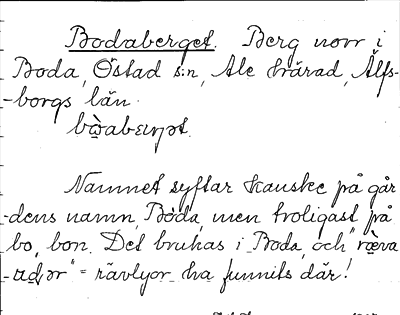 Bodaberget. Berg norr i
Boda, Östad s:n, Ale härad, Älfs-
-borgs län.
Namnet syftar kanske på går-
-dens namn, Boda, men troligast på
bo, bon. Det brukas i Boda, och "
" = rävlyor ha funnits där!